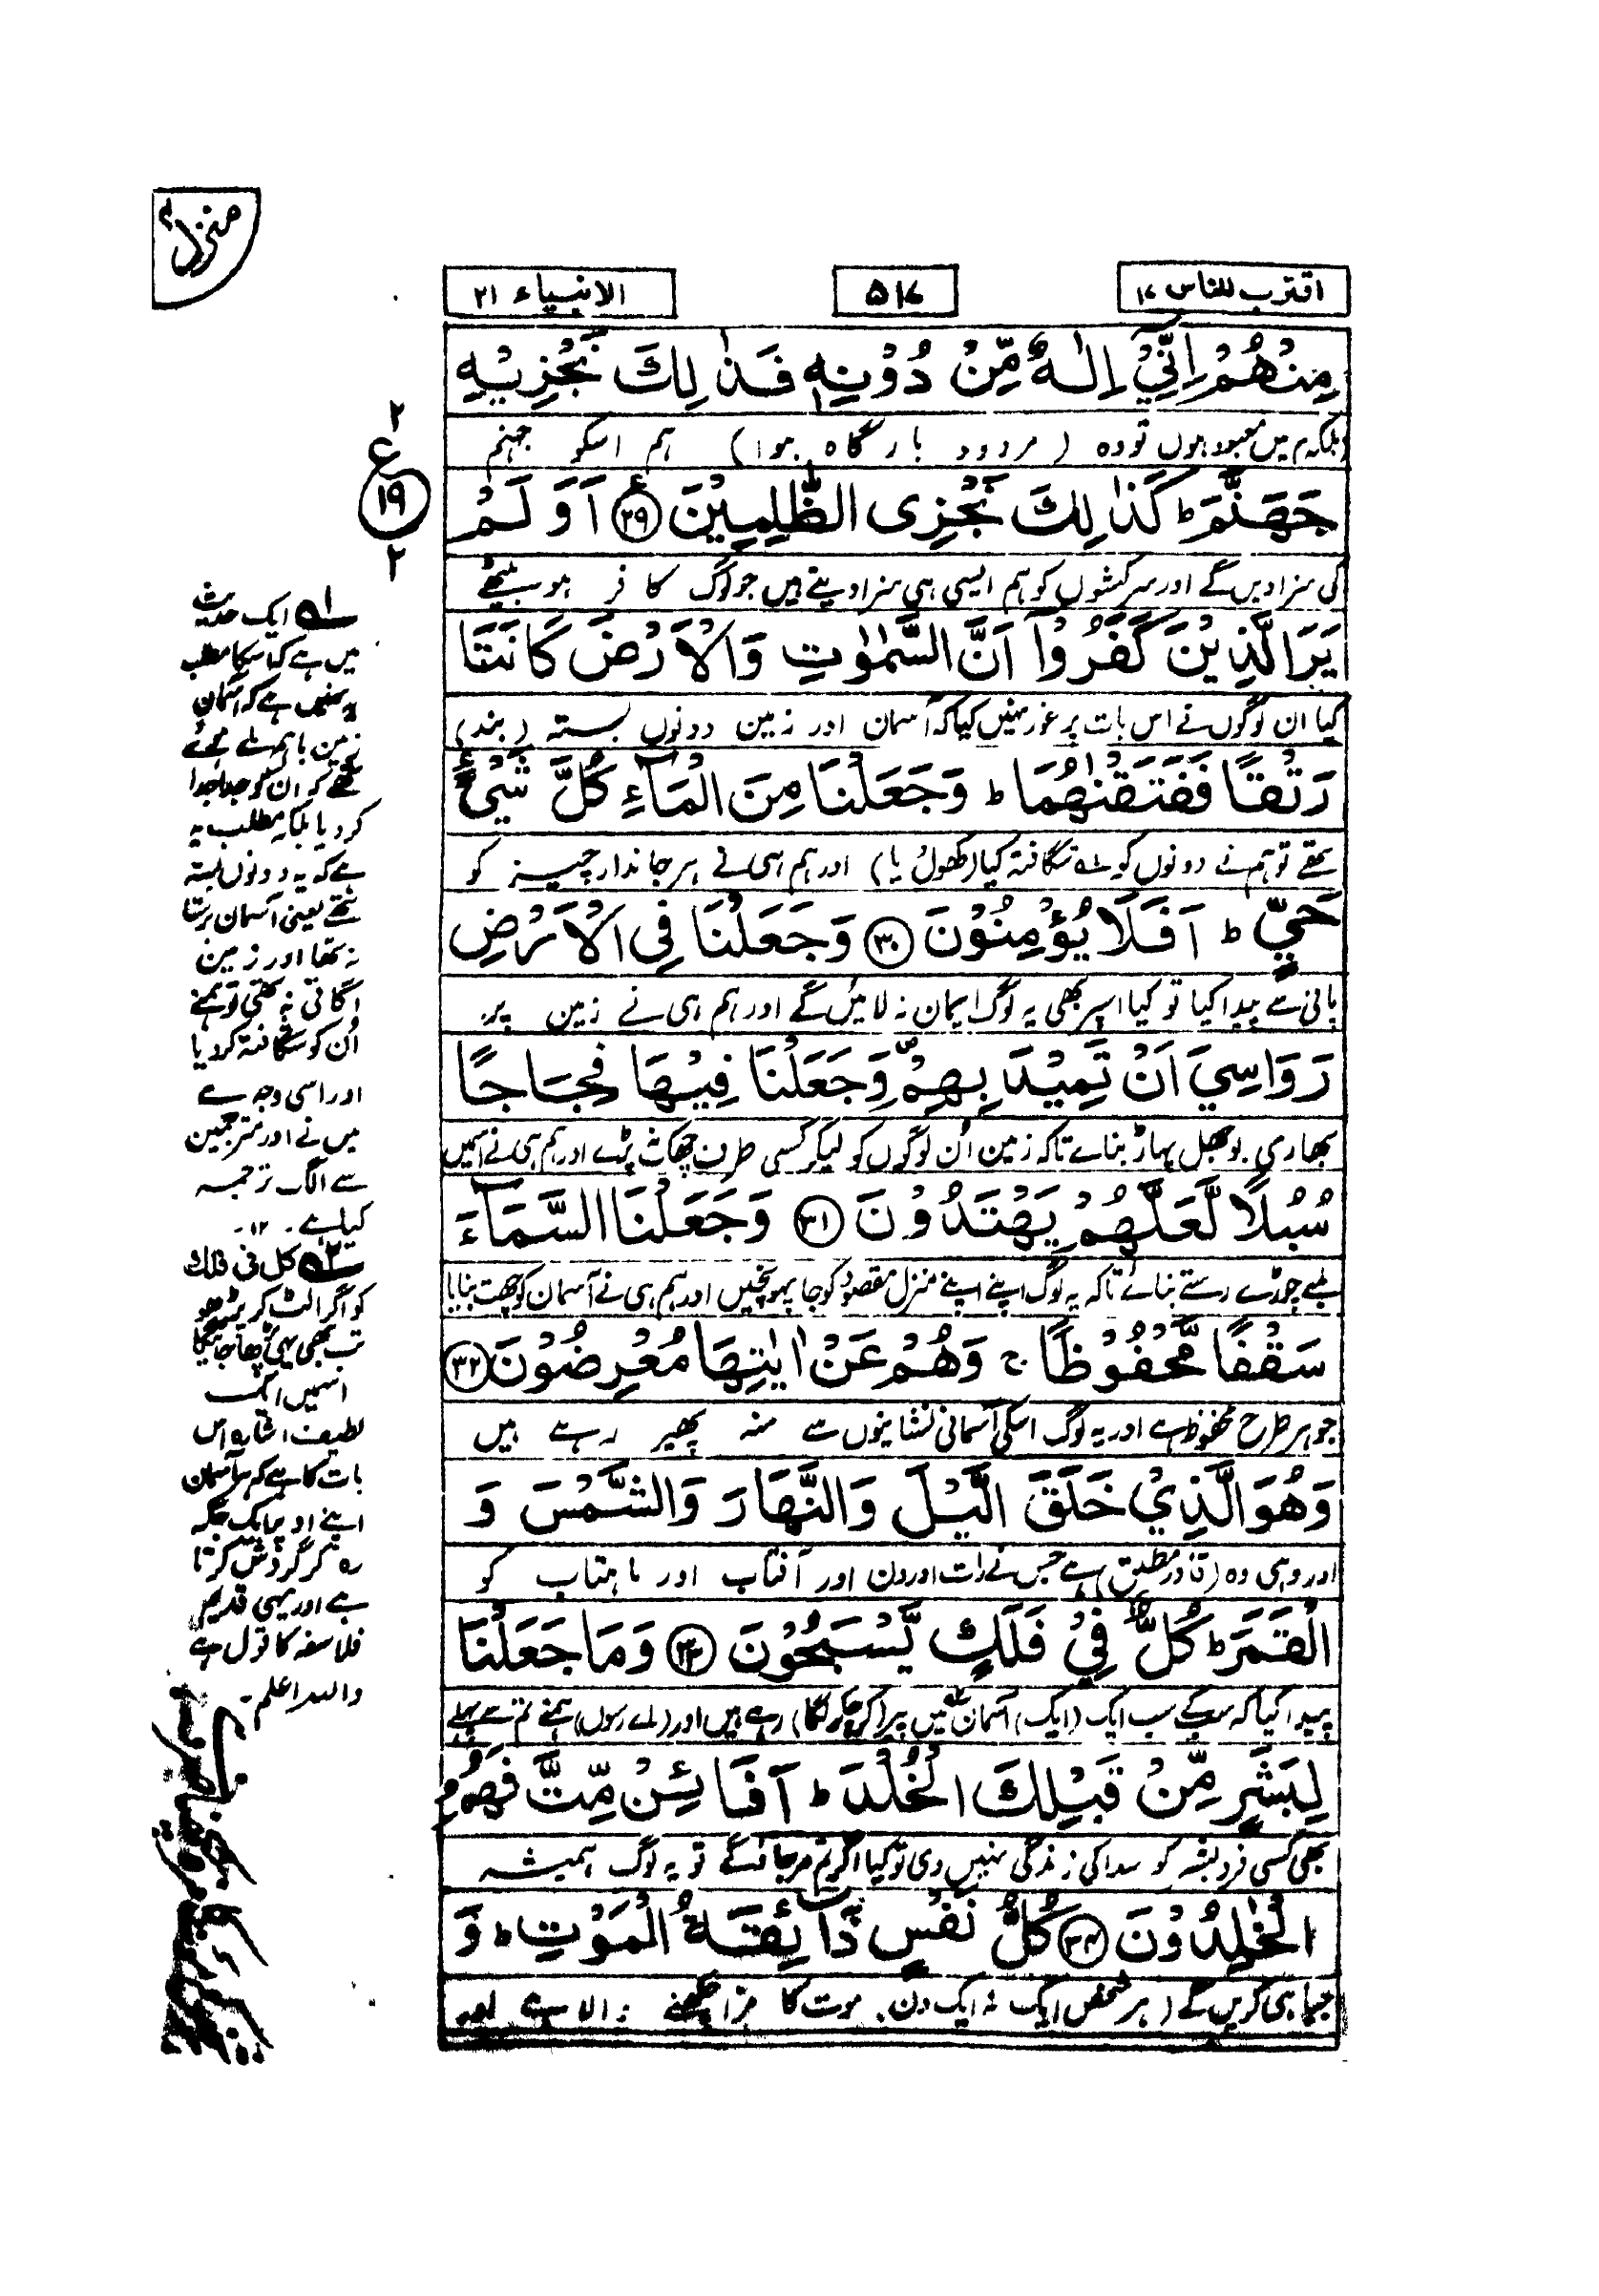 منزل ۴
اقترب للناس ۱۷
۵۱۷
الانبیاء ۲۱
مِنْهُمْ اِنِّيْۤ اِلٰهٌ مِّنْ دُوْنِهٖ فَذٰلِكَ نَجْزِيْهِ
میں معبود ہوں تو وہ (مردود بارگاہ ہوا) ہم اسکو جہنم
جَهَنَّمَ ؕ كَذٰلِكَ نَجْزِی الظّٰلِمِيْنَ ﴿۲۹﴾ اَوَ لَمْ
کی سزا دیں گے اور سرکشوں کو ہم ایسی ہی سزا دیتے ہیں جو لوگ کافر ہو بیٹھے
يَرَ الَّذِيْنَ كَفَرُوْۤا اَنَّ السَّمٰوٰتِ وَالْاَرْضَ كَانَتَا
کیا ان لوگوں نے اس بات پر غور نہیں کیا کہ آسمان اور زمین دونوں بستہ (بند)
رَتْقًا فَفَتَقْنٰهُمَا ؕ وَجَعَلْنَا مِنَ الْمَآءِ كُلَّ شَيْءٍ
تھے تو ہم نے دونوں کو شگافتہ کیا (کھول دیا) اور ہم ہی نے ہر جاندار چیز کو
حَيٍّ ؕ اَفَلَا يُؤْمِنُوْنَ ﴿۳۰﴾ وَجَعَلْنَا فِی الْاَرْضِ
پانی سے پیدا کیا تو کیا اسپر بھی یہ لوگ ایمان نہ لائیں گے اور ہم ہی نے زمین پر
رَوَاسِيَ اَنْ تَمِيْدَ بِهِمْ وَجَعَلْنَا فِيْهَا فِجَاجًا
بھاری بوجھل پہاڑ بنائے تاکہ زمین اُن لوگوں کو لیکر کسی طرف جھک نہ پڑے اور ہم ہی نے اسمیں
سُبُلًا لَّعَلَّهُمْ يَهْتَدُوْنَ ﴿۳۱﴾ وَجَعَلْنَا السَّمَآءَ
لمبے چوڑے رستے بنائے تاکہ یہ لوگ اپنے اپنے منزل مقصود کو جا پہونچیں اور ہم ہی نے آسمان کو چھت بنایا
سَقْفًا مَّحْفُوْظًا ۚ وَهُمْ عَنْ اٰيٰتِهَا مُعْرِضُوْنَ ﴿۳۲﴾
جو ہر طرح محفوظ ہے اور یہ لوگ اسکی آسمانی نشانیوں سے منہ پھیر رہے ہیں
وَهُوَ الَّذِيْ خَلَقَ الَّيْلَ وَالنَّهَارَ وَالشَّمْسَ وَ
اور وہی وہ (قادر مطلق) ہے جس نے رات اور دن اور آفتاب اور ماہتاب کو
الْقَمَرَ ؕ كُلٌّ فِيْ فَلَكٍ يَّسْبَحُوْنَ ﴿۳۳﴾ وَمَا جَعَلْنَا
پیدا کیا کہ سب کے سب ایک (ایک) آسمان میں پیر (کر چکر لگا) رہے ہیں اور (اے رسول) ہمنے تم سے پہلے
لِبَشَرٍ مِّنْ قَبْلِكَ الْخُلْدَ ؕ اَفَا۠ئِنْ مِّتَّ فَهُمُ
بھی کسی فرد بشر کو سدا کی زندگی نہیں دی تو کیا اگر تم مر جاؤ گے تو یہ لوگ ہمیشہ
الْخٰلِدُوْنَ ﴿۳۴﴾ كُلُّ نَفْسٍ ذَآئِقَةُ الْمَوْتِ ؕ وَ
جیا ہی کریں گے (ہر شخص ایک نہ ایک دن) موت کا مزا چکھنے والا ہے اور
۲
ع
۱۹
۲
۱ ایک حدیث
میں ہے کہ اسکا مطلب
یہ نہیں ہے کہ آسمان
زمین باہم ملے ہوئے
تھے کہ ان کو جدا جدا
کر دیا بلکہ مطلب یہ
ہے کہ یہ دونوں بستہ
تھے یعنی آسمان برستا
نہ تھا اور زمین
اگاتی نہ تھی تو ہمنے
اُن کو شگافتہ کر دیا
اور اسی وجہ سے
میں نے اور مترجمین
سے الگ ترجمہ
کیا ہے۔ ۱۲۔
۲ کل فی فلک
کو اگر الٹ کر پڑھو
تب بھی یہی پڑھا جائیگا
اسمیں ایک
لطیف اشارہ اس
بات کا ہے کہ ہر آسمان
اپنے اوپر ایک جگہ
رہ کر گردش کرتا
ہے اور یہی قدیم
فلاسفہ کا قول ہے
واللہ اعلم۔